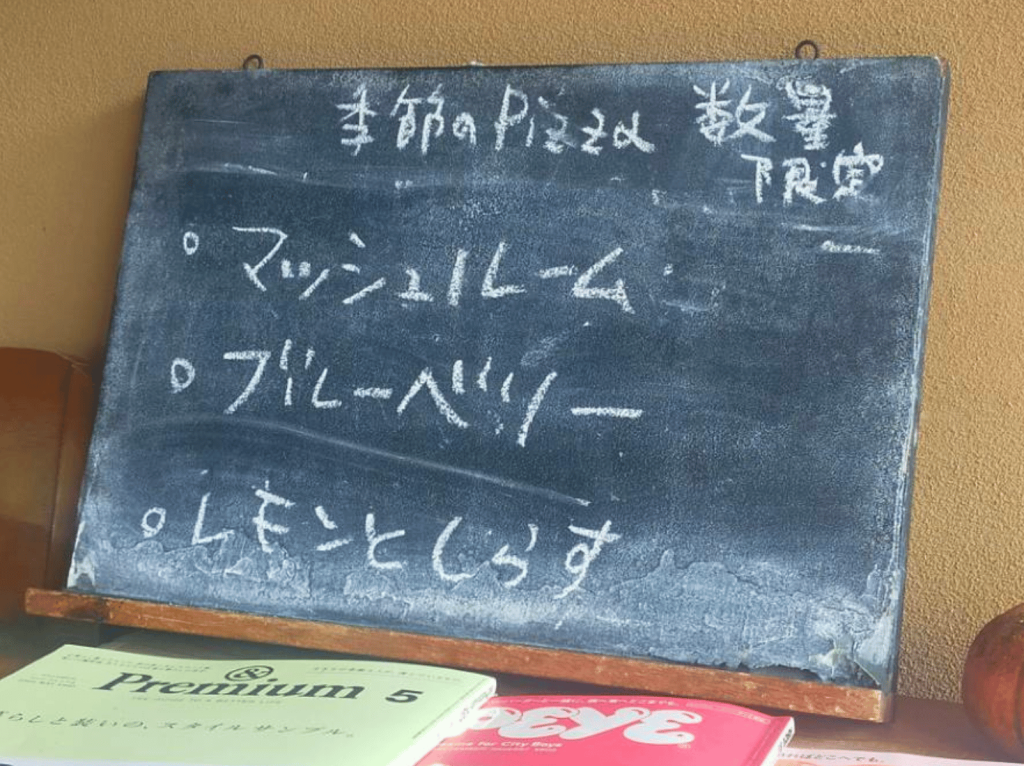 季節のPizza 数量
限定
○マッシュルーム
○ブルーベリー
○レモンとしらす
& Premium 5
らしと装いの、スタイルサンプル。
for City Boys